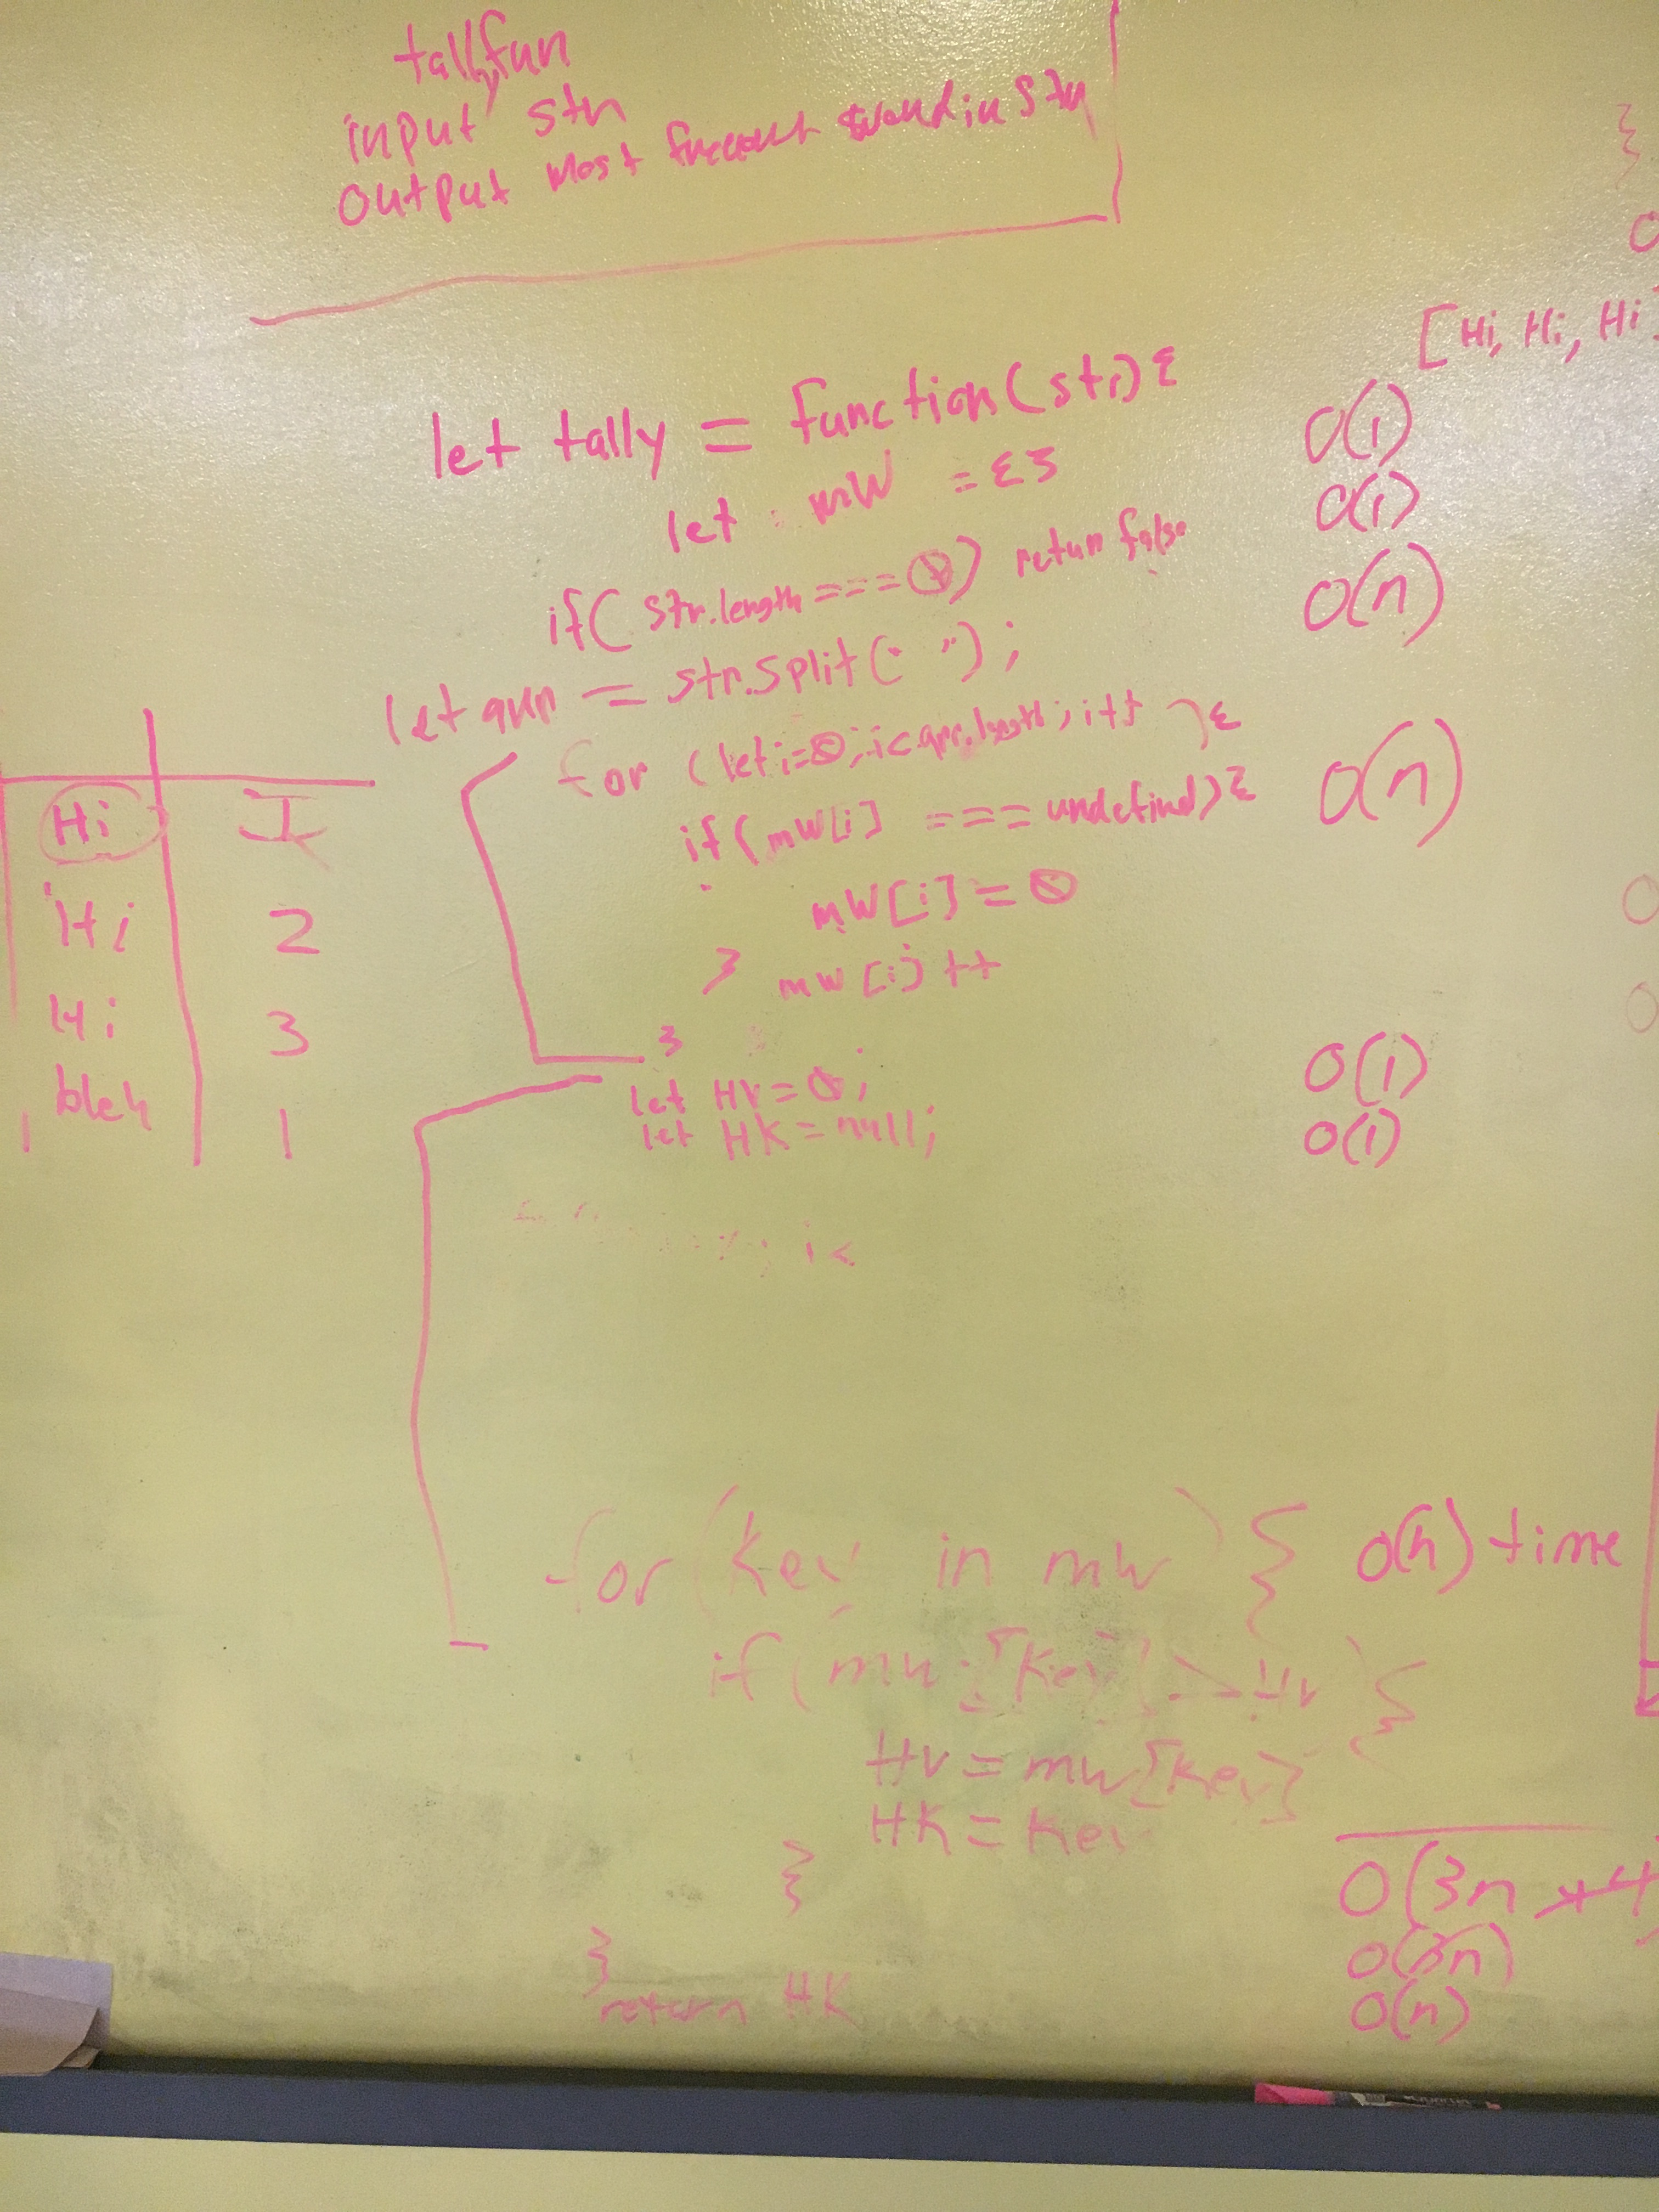 tally fun
input str
output most frecent word in str
}
[Hi, Hi, Hi
let tally = function(str){ O(1)
let mW = {} O(1)
if( str.length === 0) return false O(n)
let arr = str.split(" ");
for (let i=0; i<arr.length; i++ ){ O(n)
if (mW[i] === undefind){
mW[i] = 0
} mW[i]++
}
Hi I
Hi 2
Hi 3
bleh 1
let HV = 0; O(1)
let HK = null; O(1)
i <
for (key in mW) { O(n) time
if (mW[key] > HV) {
HV = mW[key]
HK = key
}
}
return HK
O(3n +4
O(3n)
O(n)